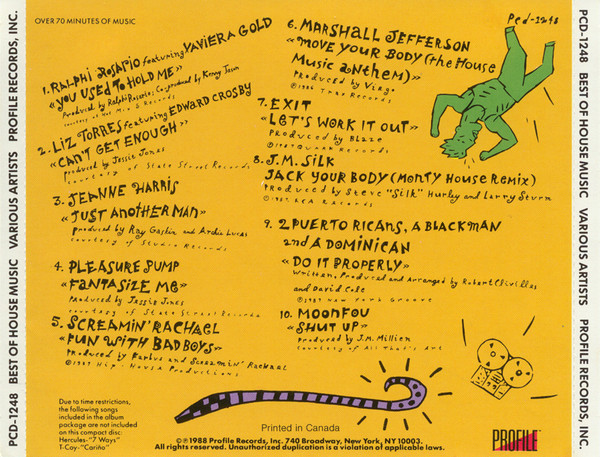 OVER 70 MINUTES OF MUSIC
Pcd-1248
1. RALPHI ROSARIO featuring XAVIERA GOLD
«YOU USED TO HOLD ME»
Produced by Ralphi Rosario; Co-produced by Kenny Jason
courtesy of Hot Mix 5 Records
2. LIZ TORRES featuring EDWARD CROSBY
«CAN'T GET ENOUGH»
produced by Jessie Jones
courtesy of State Street Records
3. JEANNE HARRIS
«JUST ANOTHER MAN»
produced by Ray Gaslin and Archie Lucas
courtesy of Studio Records
4. PLEASURE PUMP
«FANTASIZE ME»
Produced by Jessie Jones
courtesy of State Street Records
5. SCREAMIN' RACHAEL
«FUN WITH BAD BOYS»
Produced by Farbus and Screamin' Rachael
©1987 Hip-House Productions
6. MARSHALL JEFFERSON
«MOVE YOUR BODY (the House
Music anthem)»
Produced by Virgo
©1986 Trax Records
7. EXIT
«LET'S WORK IT OUT»
PRODUCED by Blaze
Records
8. J.M. SILK
JACK YOUR BODY (MONTY HOUSE REMIX)
PRODUCED by Steve "Silk" Hurley and Larry Sturm
©1987 RCA Records
9. 2 PUERTO RICANS, A BLACKMAN
and A DOMINICAN
«DO IT PROPERLY»
Written, Produced and Arranged by Robert Clivilles
and David Cole
©1987 New York Groove
10. MOONFOU
«SHUT UP»
Produced by J.M. Millien
Courtesy of All That's Art
Due to time restrictions,
the following songs
included in the album
package are not included
on this compact disc:
Hercules-"7 Ways"
T-Coy-"Cariño"
Printed in Canada
©℗1988 Profile Records, Inc. 740 Broadway, New York, NY 10003.
All rights reserved. Unauthorized duplication is a violation of applicable laws.
PROFILE
PCD-1248 BEST OF HOUSE MUSIC VARIOUS ARTISTS PROFILE RECORDS, INC.
PCD-1248 BEST OF HOUSE MUSIC VARIOUS ARTISTS PROFILE RECORDS, INC.